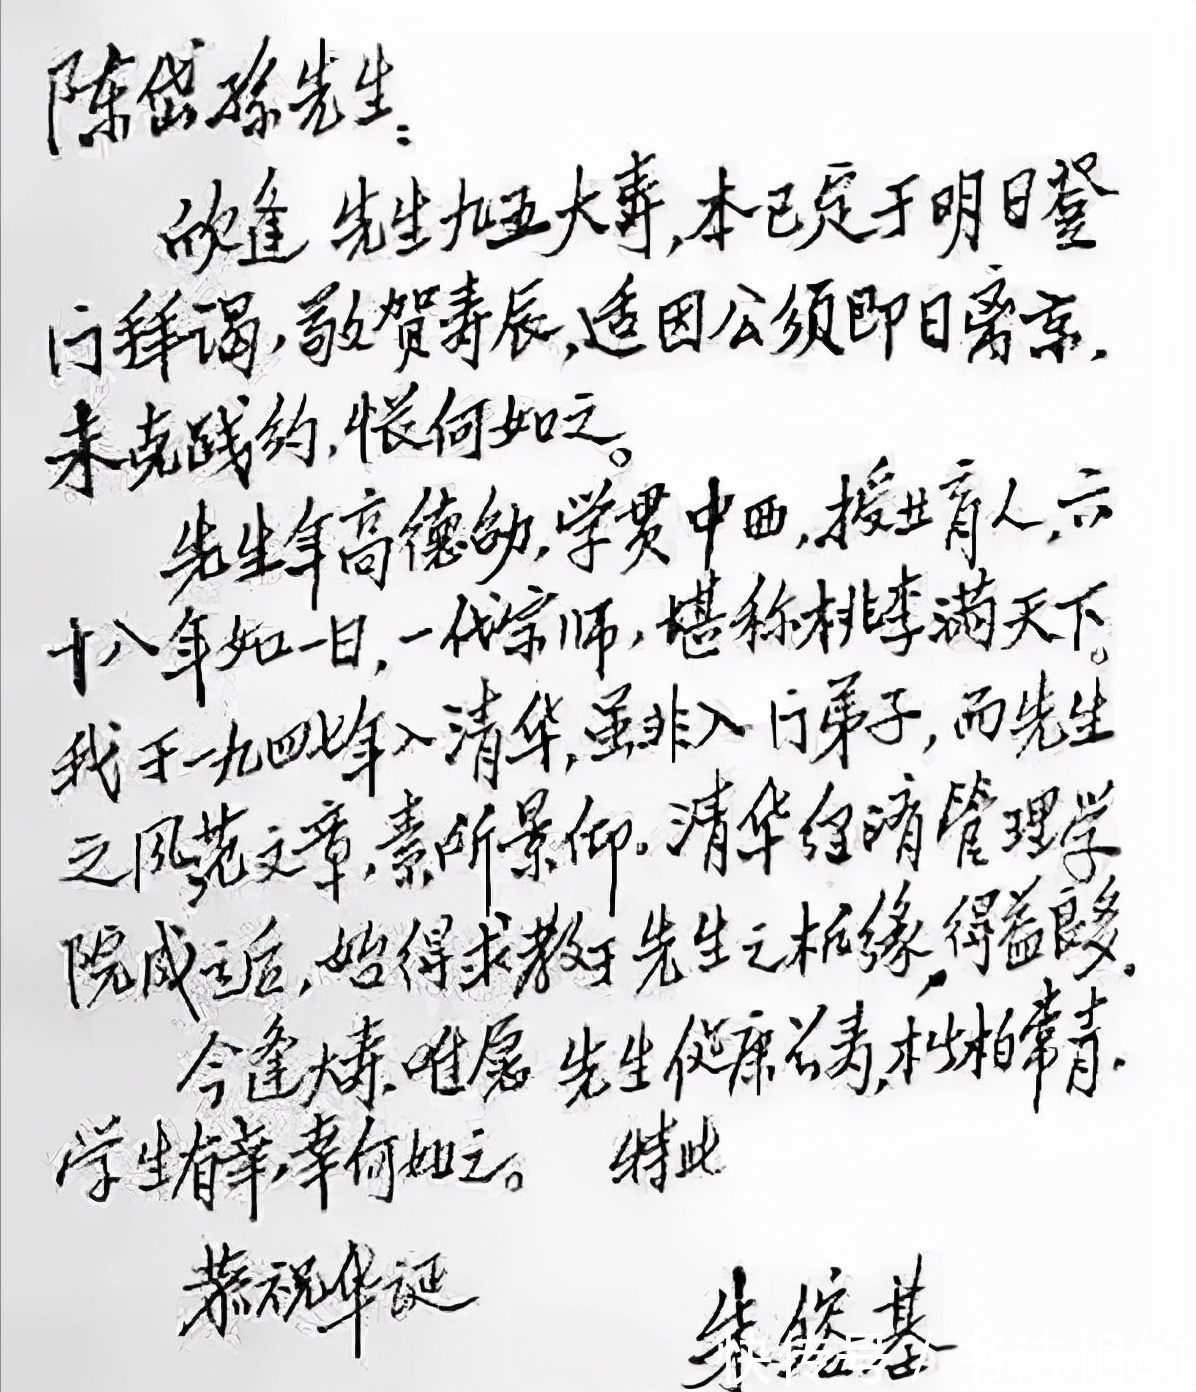 陈岱孙先生：
欣逢 先生九五大寿，本已定于明日登
门拜谒，敬贺寿辰，适因公须即日离京，
未克践约，怅何如之。
先生年高德劭，学贯中西，授业育人，六
十八年如一日，一代宗师，堪称桃李满天下。
我于一九四七年入清华，虽非入门弟子，而先生
之风范文章，素所景仰。清华经济管理学
院成立后，始得求教于先生之机缘，得益良多。
今逢大寿，唯愿 先生健康长寿，松柏常青。
学生有幸，幸何如之。 特此
恭祝华诞
朱镕基
快传号 / 书法相约